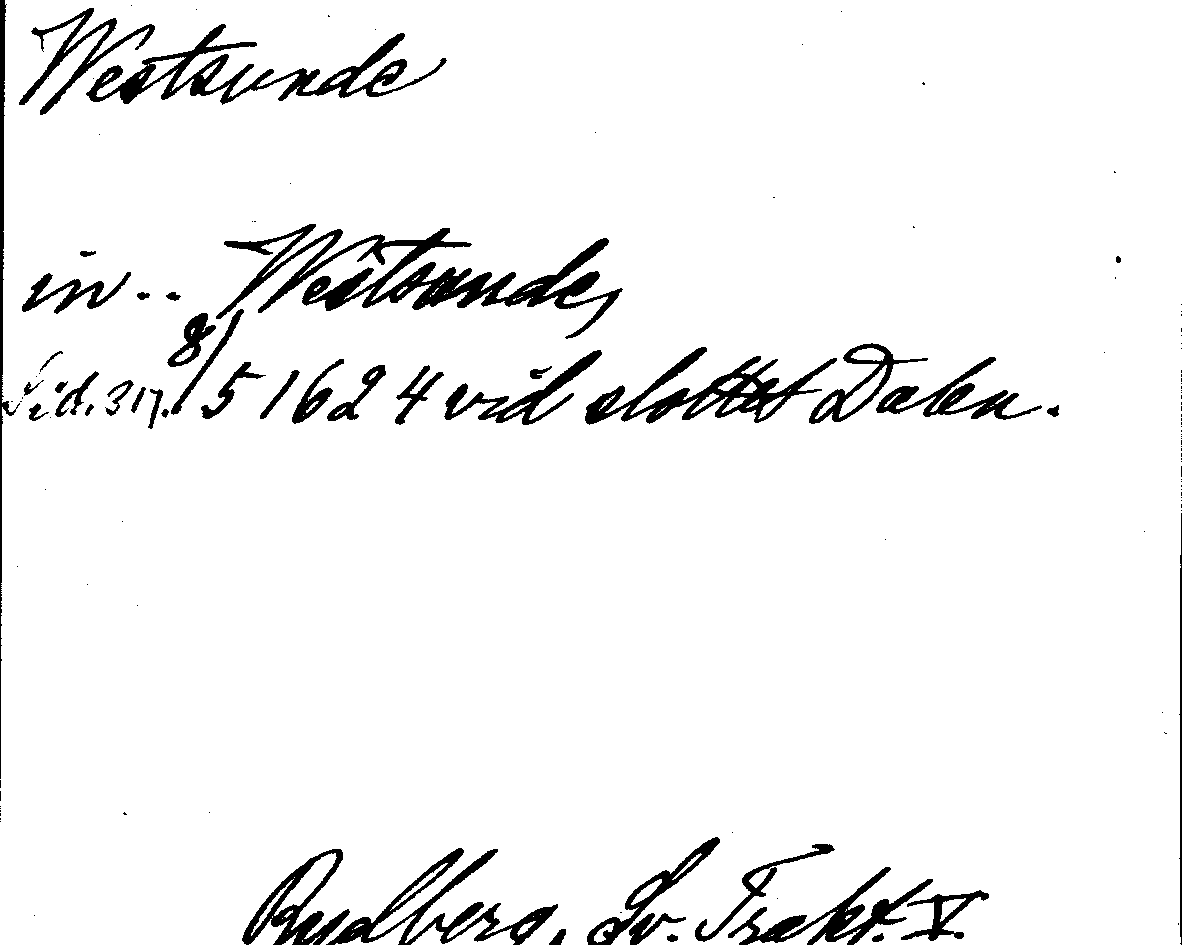 Westsunde
in.. Westsunde,
Sid. 317. 8/5 1624 vid slottet Dalen.
Rydberg, Sv. Trakt. V.